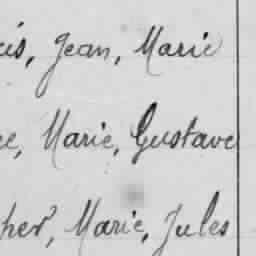 is, Jean, Marie
e, Marie, Gustave
her, Marie, Jules